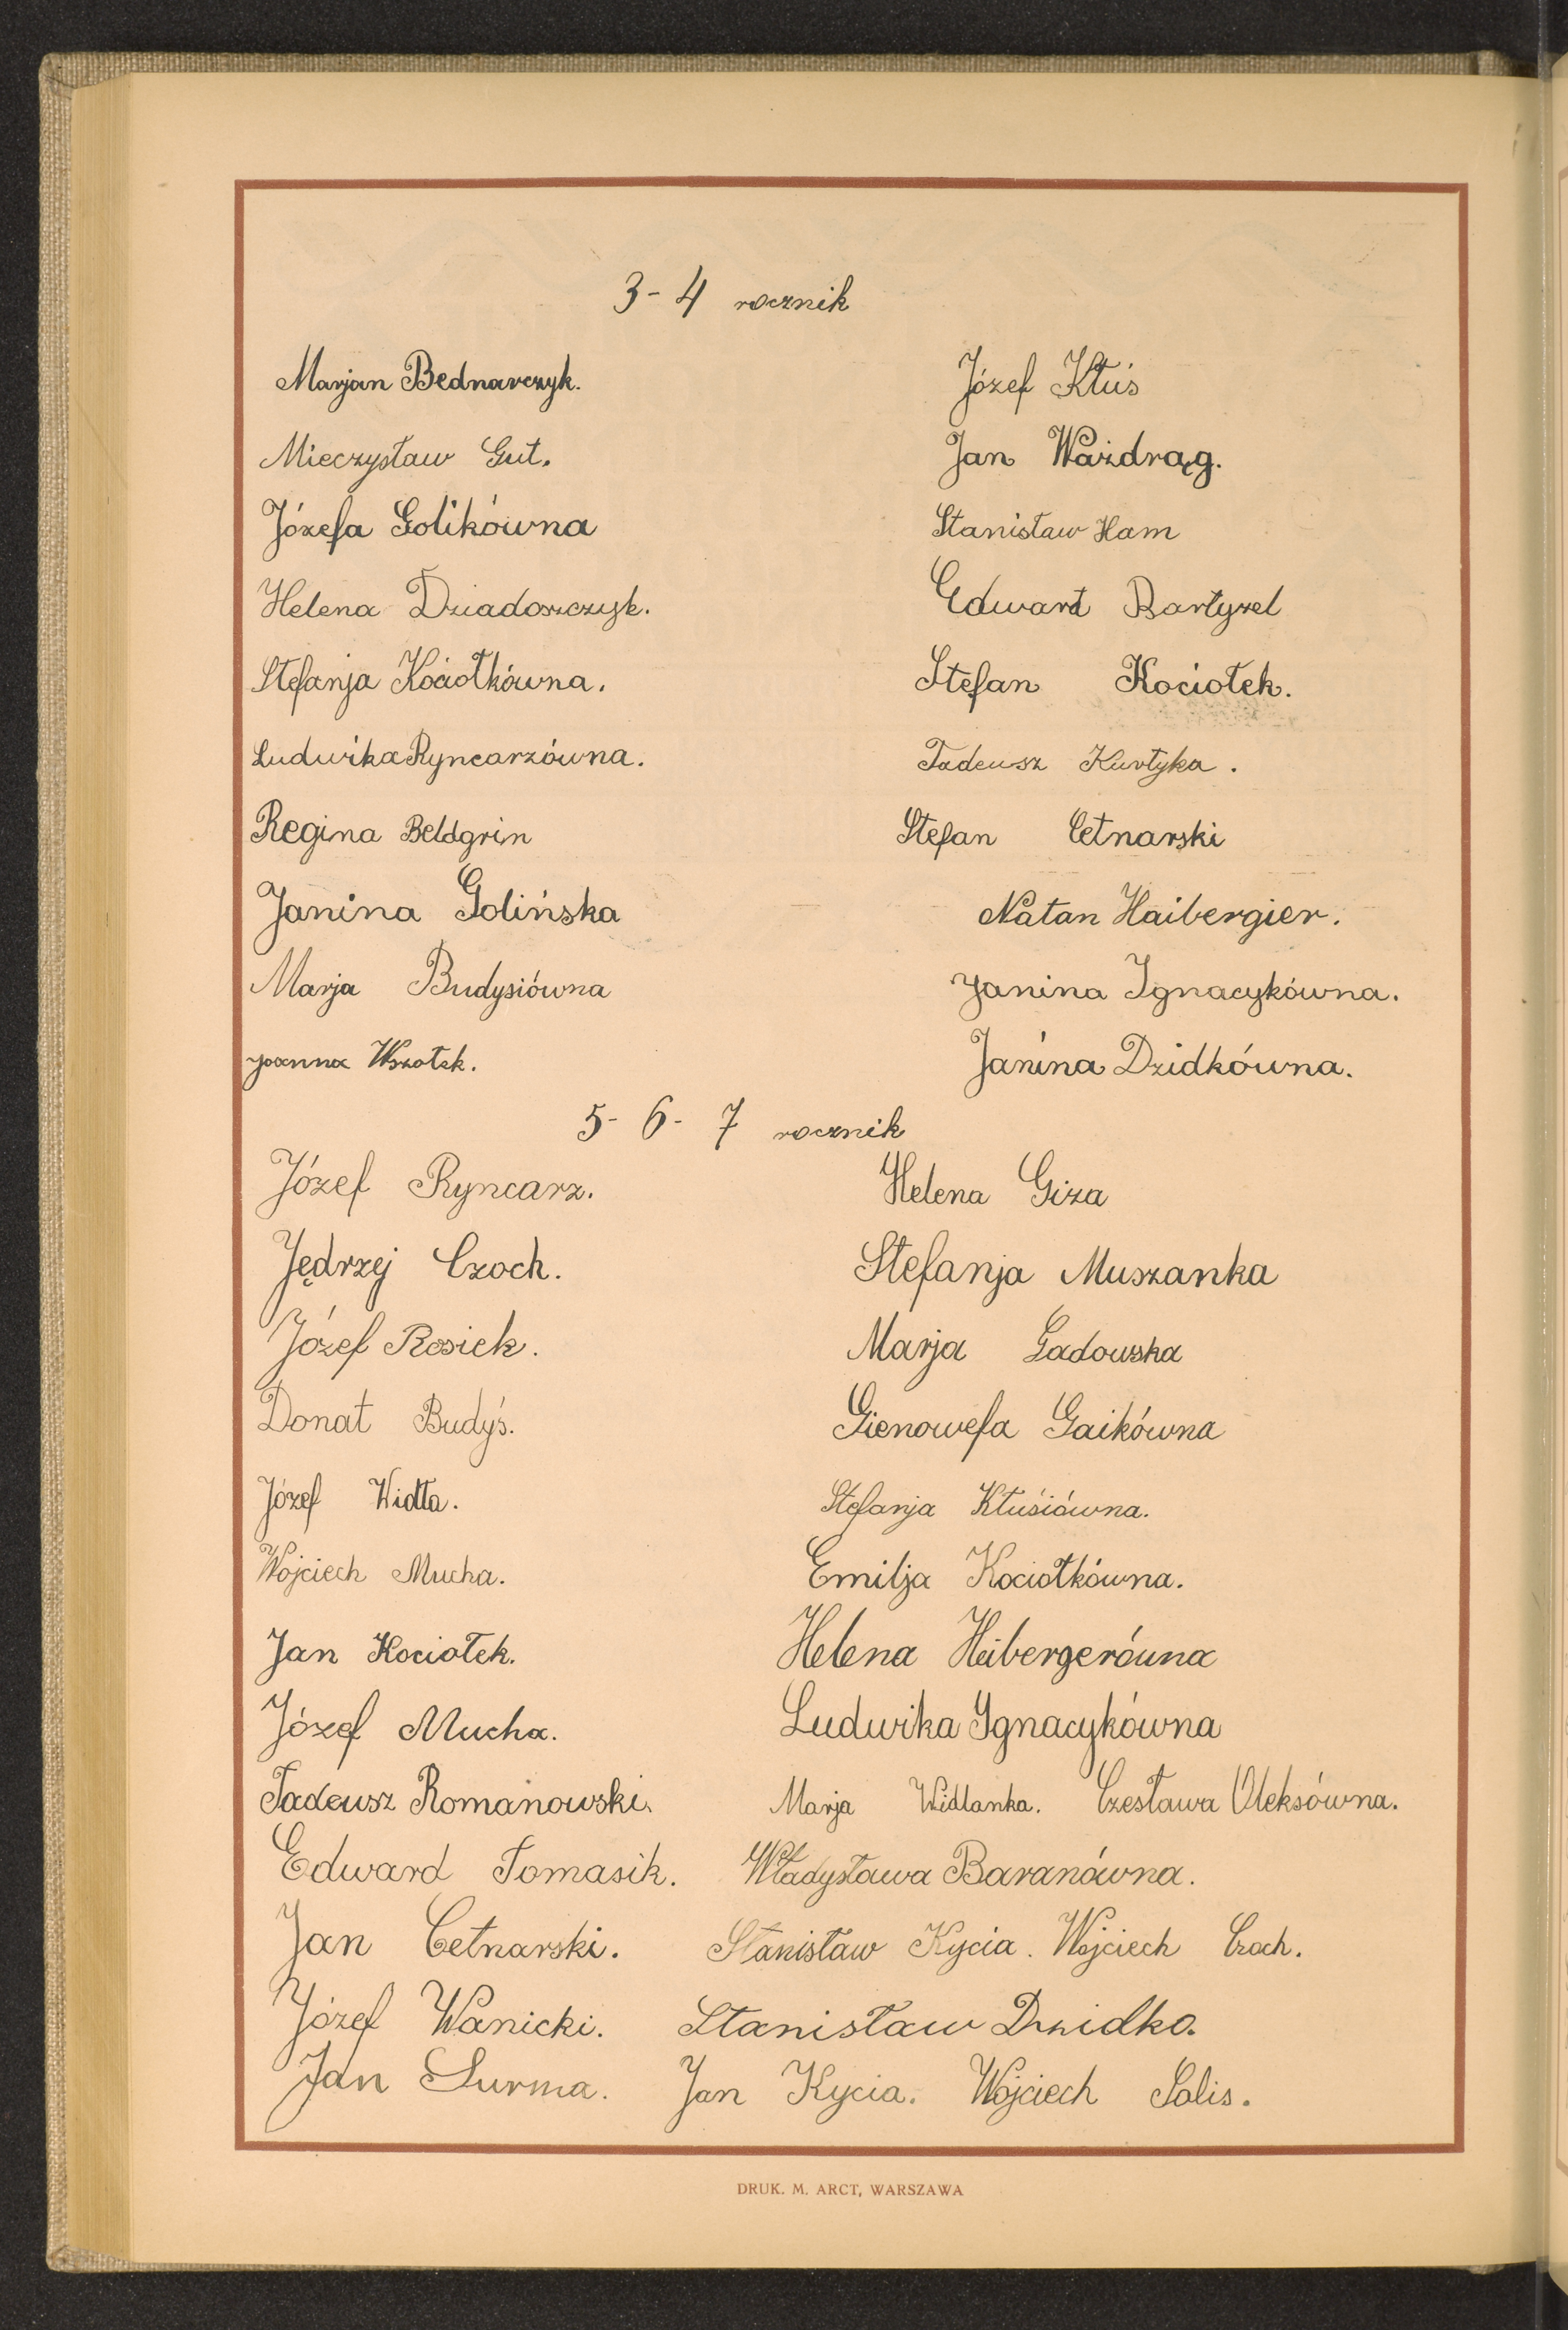 3-4 rocznik
Marjan Bednarczyk. Józef Kłuś
Mieczysław Gut. Jan Ważdrąg.
Józefa Golikówna Stanisław Ham
Helena Dziadoszczyk. Edwart Bartyzel
Stefanja Kociołkówna. Stefan Kociołek.
Ludwika Ryncarzówna. Tadeusz Kurtyka.
Regina Beldgrin Stefan Cetnarski
Janina Golińska Natan Haibergier.
Marja Budysiówna Janina Ignacykówna.
Joanna Wszołek. Janina Dzidkówna.
5-6-7 rocznik
Józef Ryncarz. Helena Giza
Jędrzej Czoch. Stefanja Muszanka
Józef Rosiek. Marja Gadowska
Donat Budyś. Gienowefa Gaikówna
Józef Widła. Stefanja Kłuśiówna.
Wojciech Mucha. Emilja Kociołkówna.
Jan Kociołek. Helena Heibergerówna
Józef Mucha. Ludwika Ignacykówna
Tadeusz Romanowski. Marja Widlanka. Czesława Oleksówna.
Edward Tomasik. Władysława Baranówna.
Jan Cetnarski. Stanisław Kycia. Wojciech Czoch.
Józef Wanicki. Stanisław Dzidko.
Jan Surma. Jan Kycia. Wojciech Solis.
DRUK. M. ARCT, WARSZAWA